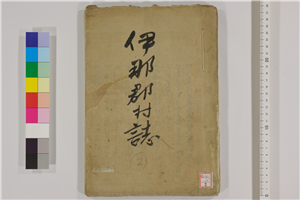 伊那郡村誌